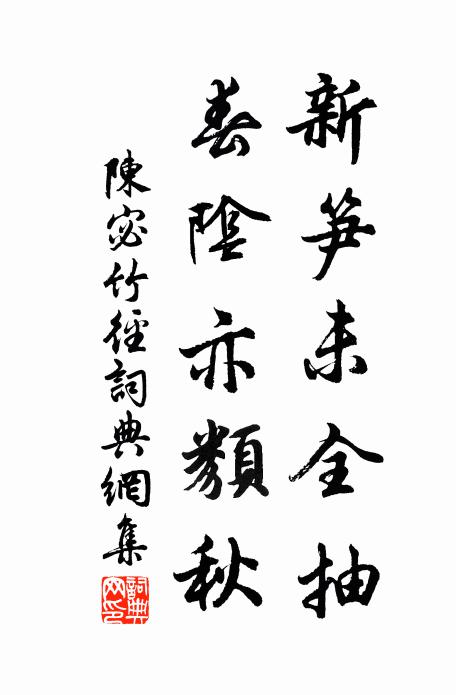 新笋未全抽
春陰亦類秋
陳宓竹徑詞典網集